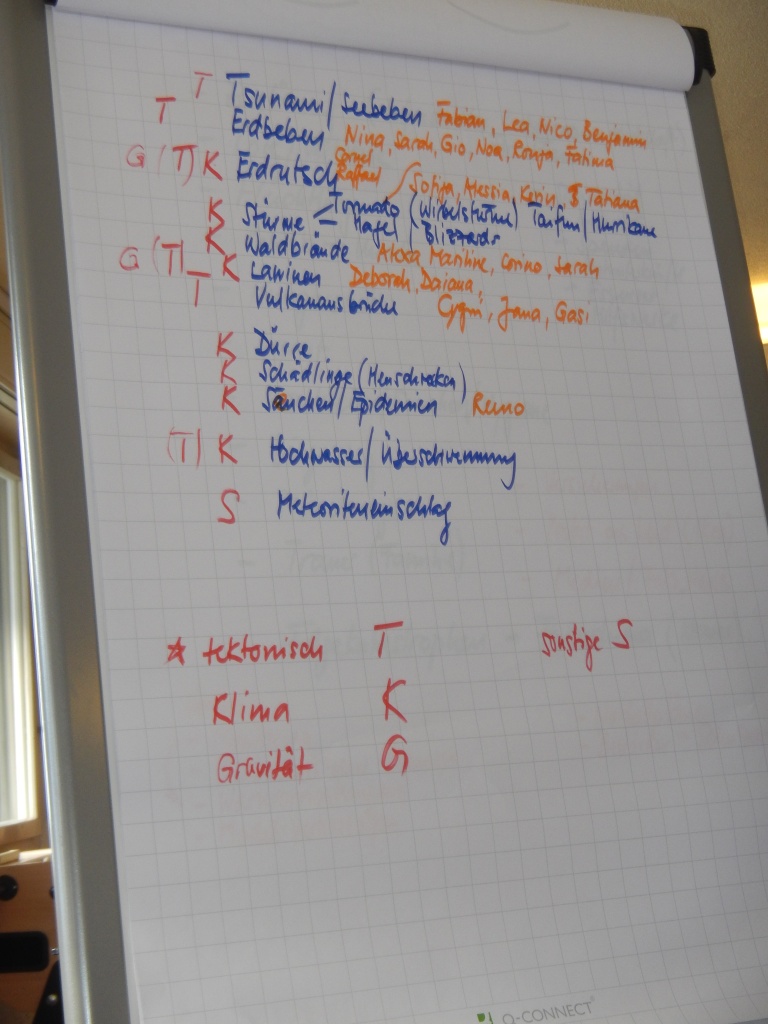 T Tsunami/Seebeben Fabian, Lea, Nico, Benjamin
T Erdbeben Nina, Sarah, Gio, Noa, Ronja, Fatima
G (T) K Erdrutsch Cornel Raffael
Sofija, Alessia, Kerin, Tatiana
K Stürme Tornado (Wirbelstürme) Taifun/Hurrikane
Hagel Blizzards
K Waldbrände Alexa Marline, Corino, Sarah
G (T) K Lawinen Deborah, Daiana,
T Vulkanausbrüche Jana, Gasi
K Dürre
K Schädlinge (Heuschrecken)
K Seuchen/Epidemien Remo
(T) K Hochwasser/Überschwemmung
S Meteoriteneinschlag
tektonisch T sonstige S
Klima K
Gravität G
Q-CONNECT